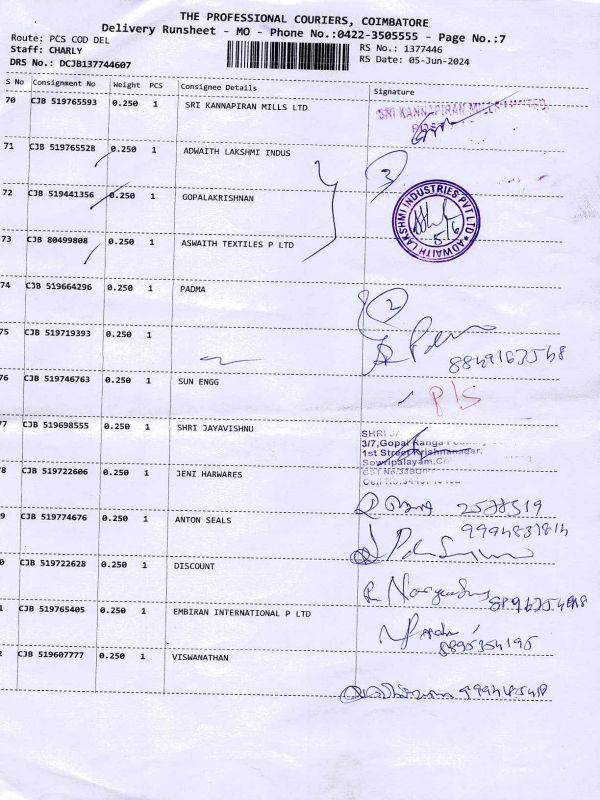 THE PROFESSIONAL COURIERS, COIMBATORE
Delivery Runsheet - MO - Phone No.:0422-3505555 - Page No.:7
Route; PCS COD DEL
RS No.: 1377446
Staff: CHARLY
RS Date: 05-Jun-2024
DRS No.: DCJB137744607
S No Consignment No Weight PCS Consignee Details Signature
70 CJB 519765593 0.250 1 SRI KANNAPIRAN MILLS LTD
SRI KANNAPIRAN MILLS LIMITED
71 CJB 519765528 0.250 1 ADWAITH LAKSHMI INDUS
3
72 CJB 519441356 0.250 1 GOPALAKRISHNAN
ADWAITH LAKSHMI INDUSTRIES PVT LTD
5/6
73 CJB 80499808 0.250 1 ASWAITH TEXTILES P LTD
74 CJB 519664296 0.250 1 PADMA
2
75 CJB 519719393 0.250 1
76 CJB 519746763 0.250 1 SUN ENGG
P/S
77 CJB 519698555 0.250 1 SHRI JAYAVISHNU
SHRI
3/7,Gopal Ranga
1st Street Krishnanagar,
Sowripalayam,
8 CJB 519722606 0.250 1 JENI HARWARES
2577519
9 CJB 519774676 0.250 1 ANTON SEALS
0 CJB 519722628 0.250 1 DISCOUNT
1 CJB 519765405 0.250 1 EMBIRAN INTERNATIONAL P LTD
8895354195
2 CJB 519607777 0.250 1 VISWANATHAN